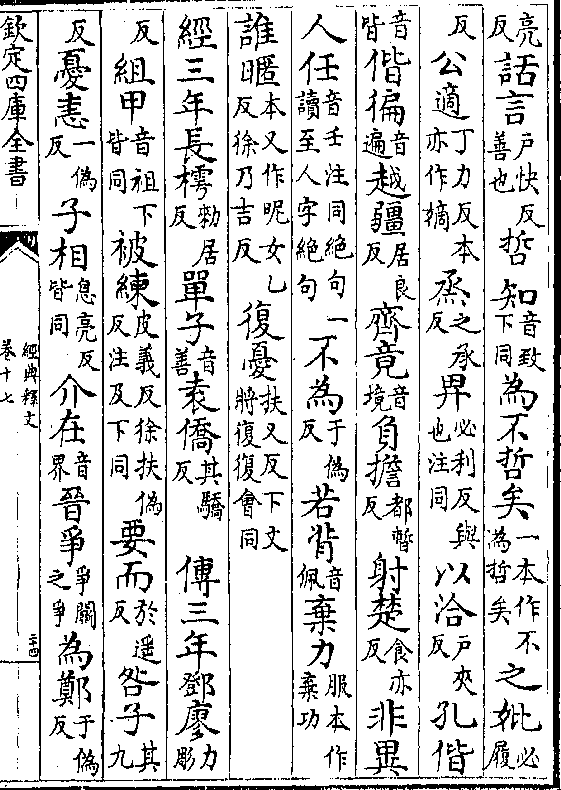 亮反話言戶快反善也哲知音致下同為不哲矣一本作不為哲矣之妣必履
反公適丁力反本亦作嫡烝之承反畀必利反與也注同以洽戶夾反孔偕
音皆偕徧音遍越疆居良反齊竟音境負擔都暫反射楚食亦反非異
人任音壬注同絶句一讀至人字絶句不為于偽反若背音佩棄力服本作棄功
誰暱本又作昵女乙反徐乃吉反復憂扶又反下文將復復會同
經三年長樗勅居反單子音善袁僑其驕反傳三年鄧廖力彫
反組甲音祖下皆同被練皮義反徐扶偽反注及下同要而於遥反咎子其九
反憂恚一偽反子相息亮反皆同介在音界晉爭爭鬭之爭為鄭于偽反
欽定四庫全書
經典釋文
卷十七